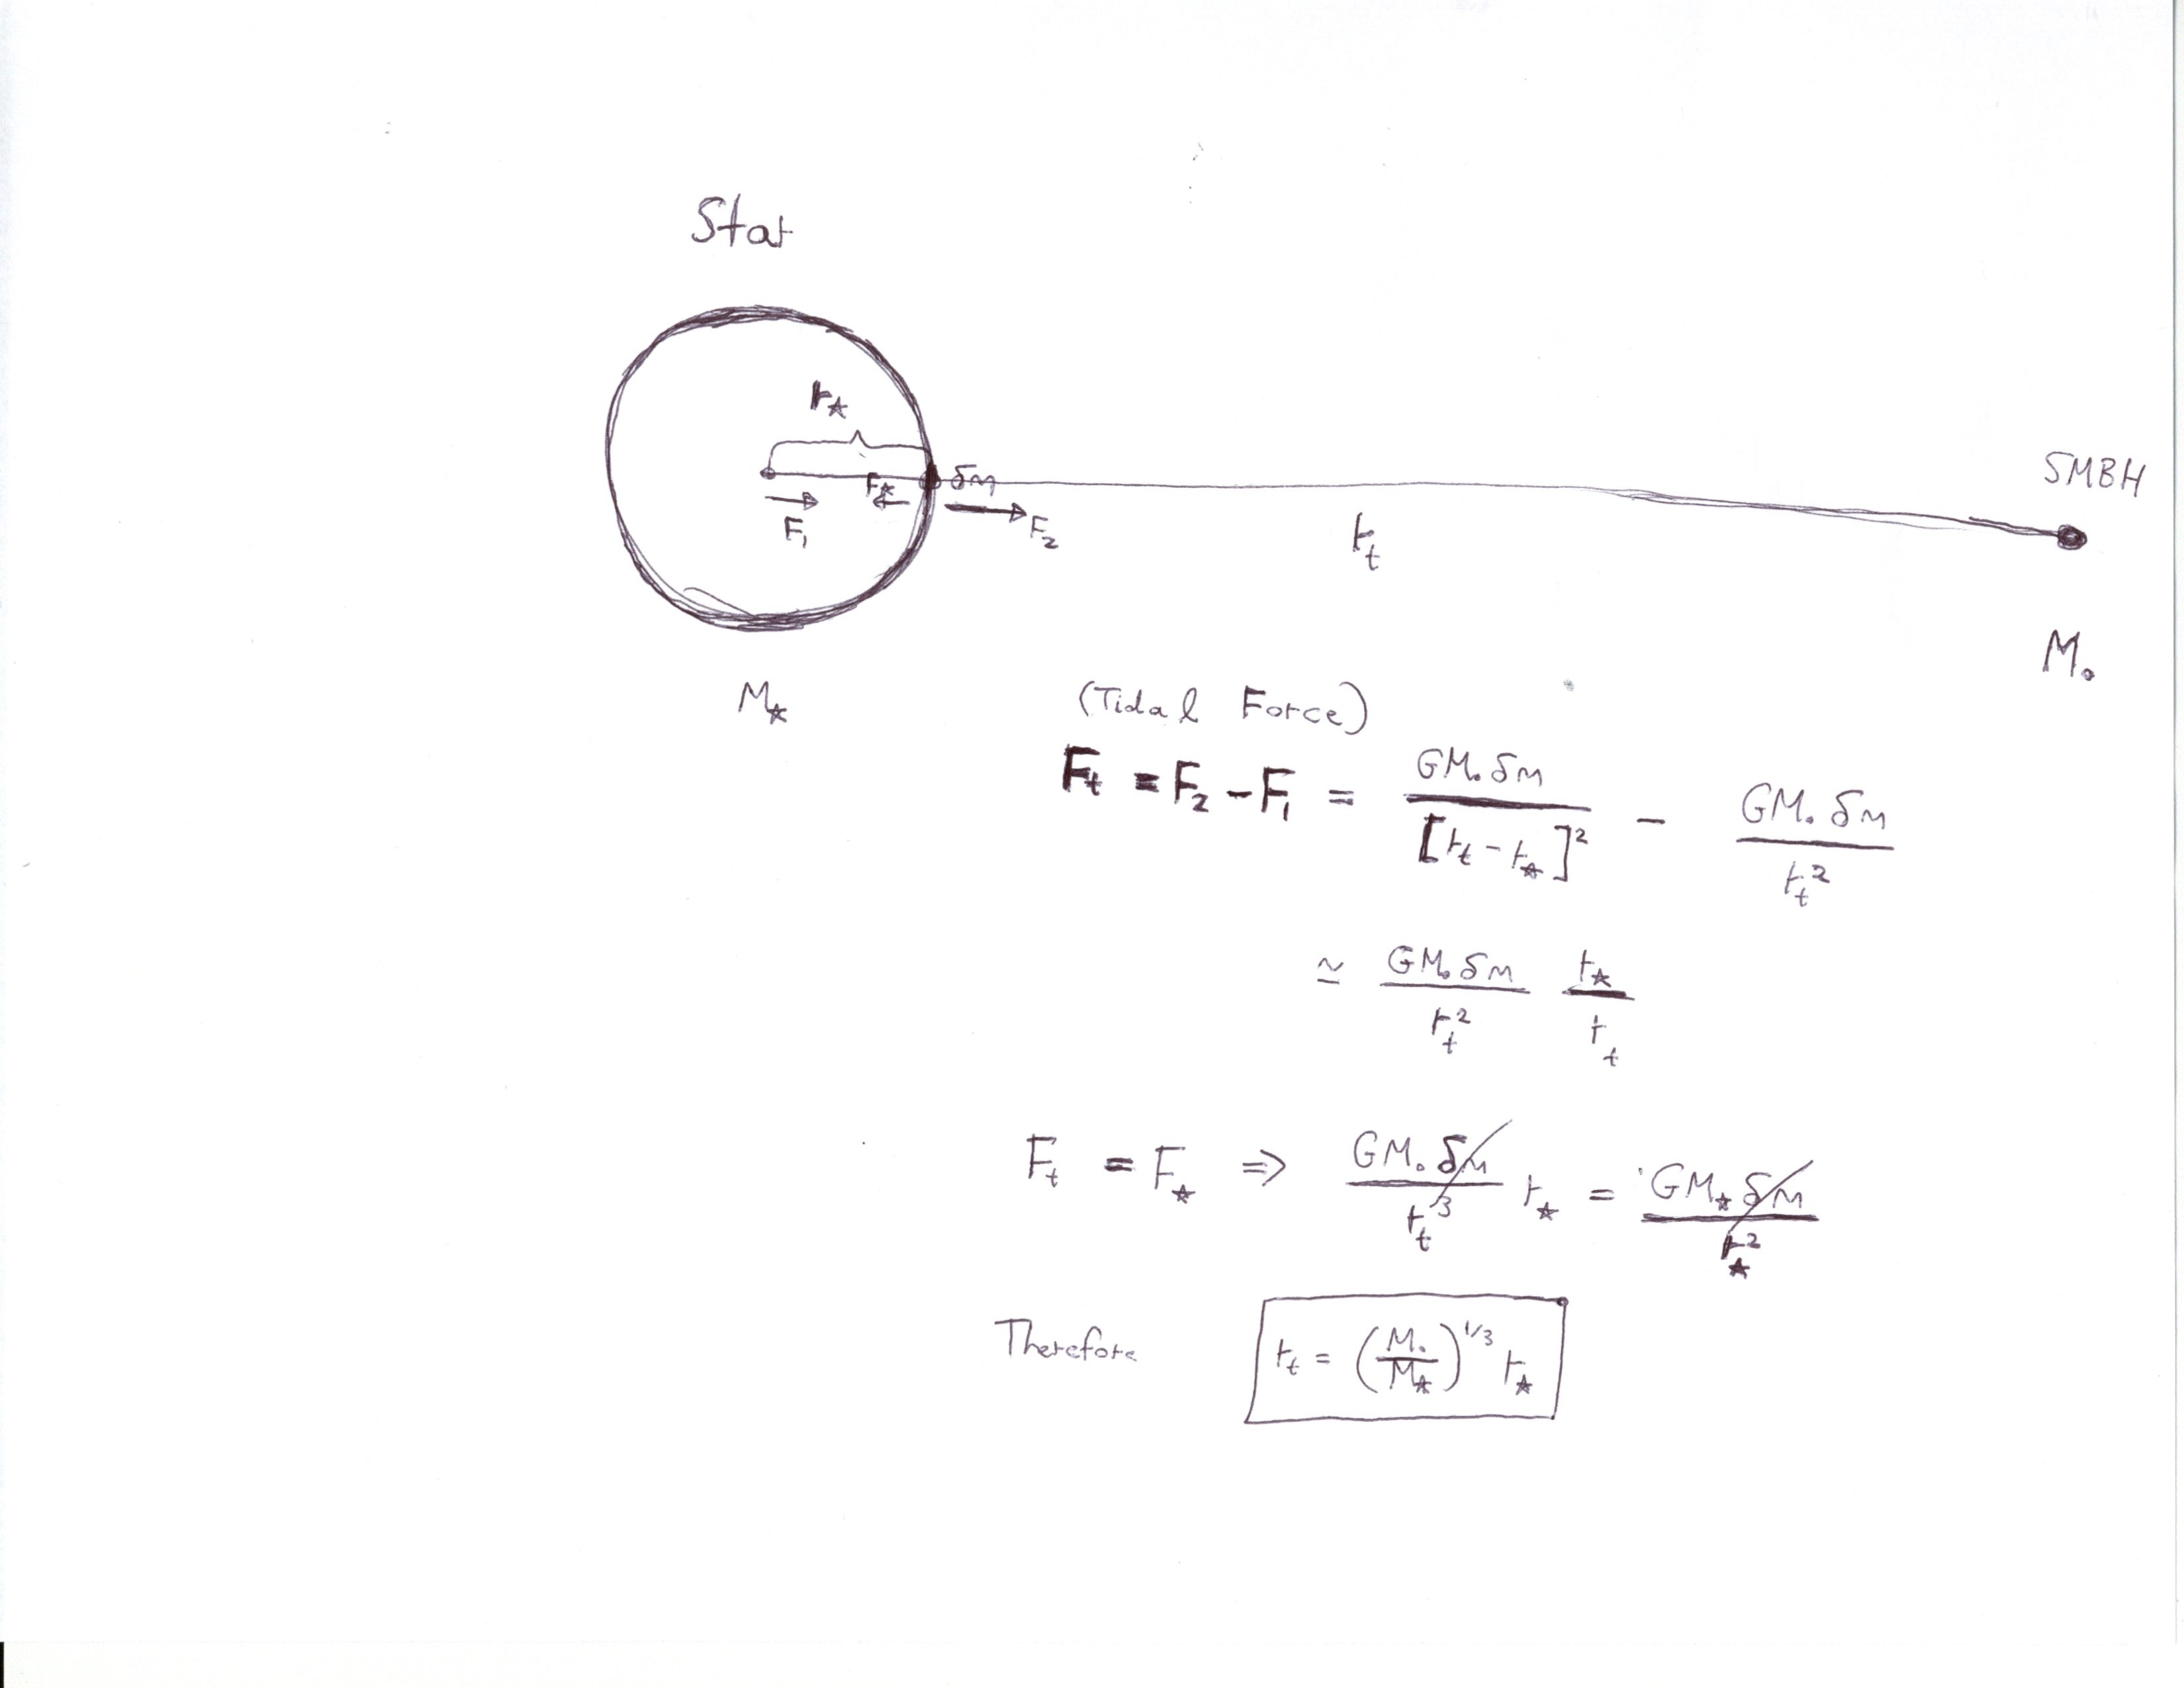 Star
r★
SMBH
F★ δm
F₁ F₂
rₜ
M•
M★
(Tidal Force)
Fₜ = F₂ - F₁ = GM• δm / [rₜ - r★]² - GM• δm / rₜ²
≃ GM• δm / rₜ² r★ / rₜ
Fₜ = F★ ⇒ GM• δm / rₜ³ r★ = GM★ δm / r★²
Therefore rₜ = (M• / M★)^1/3 r★